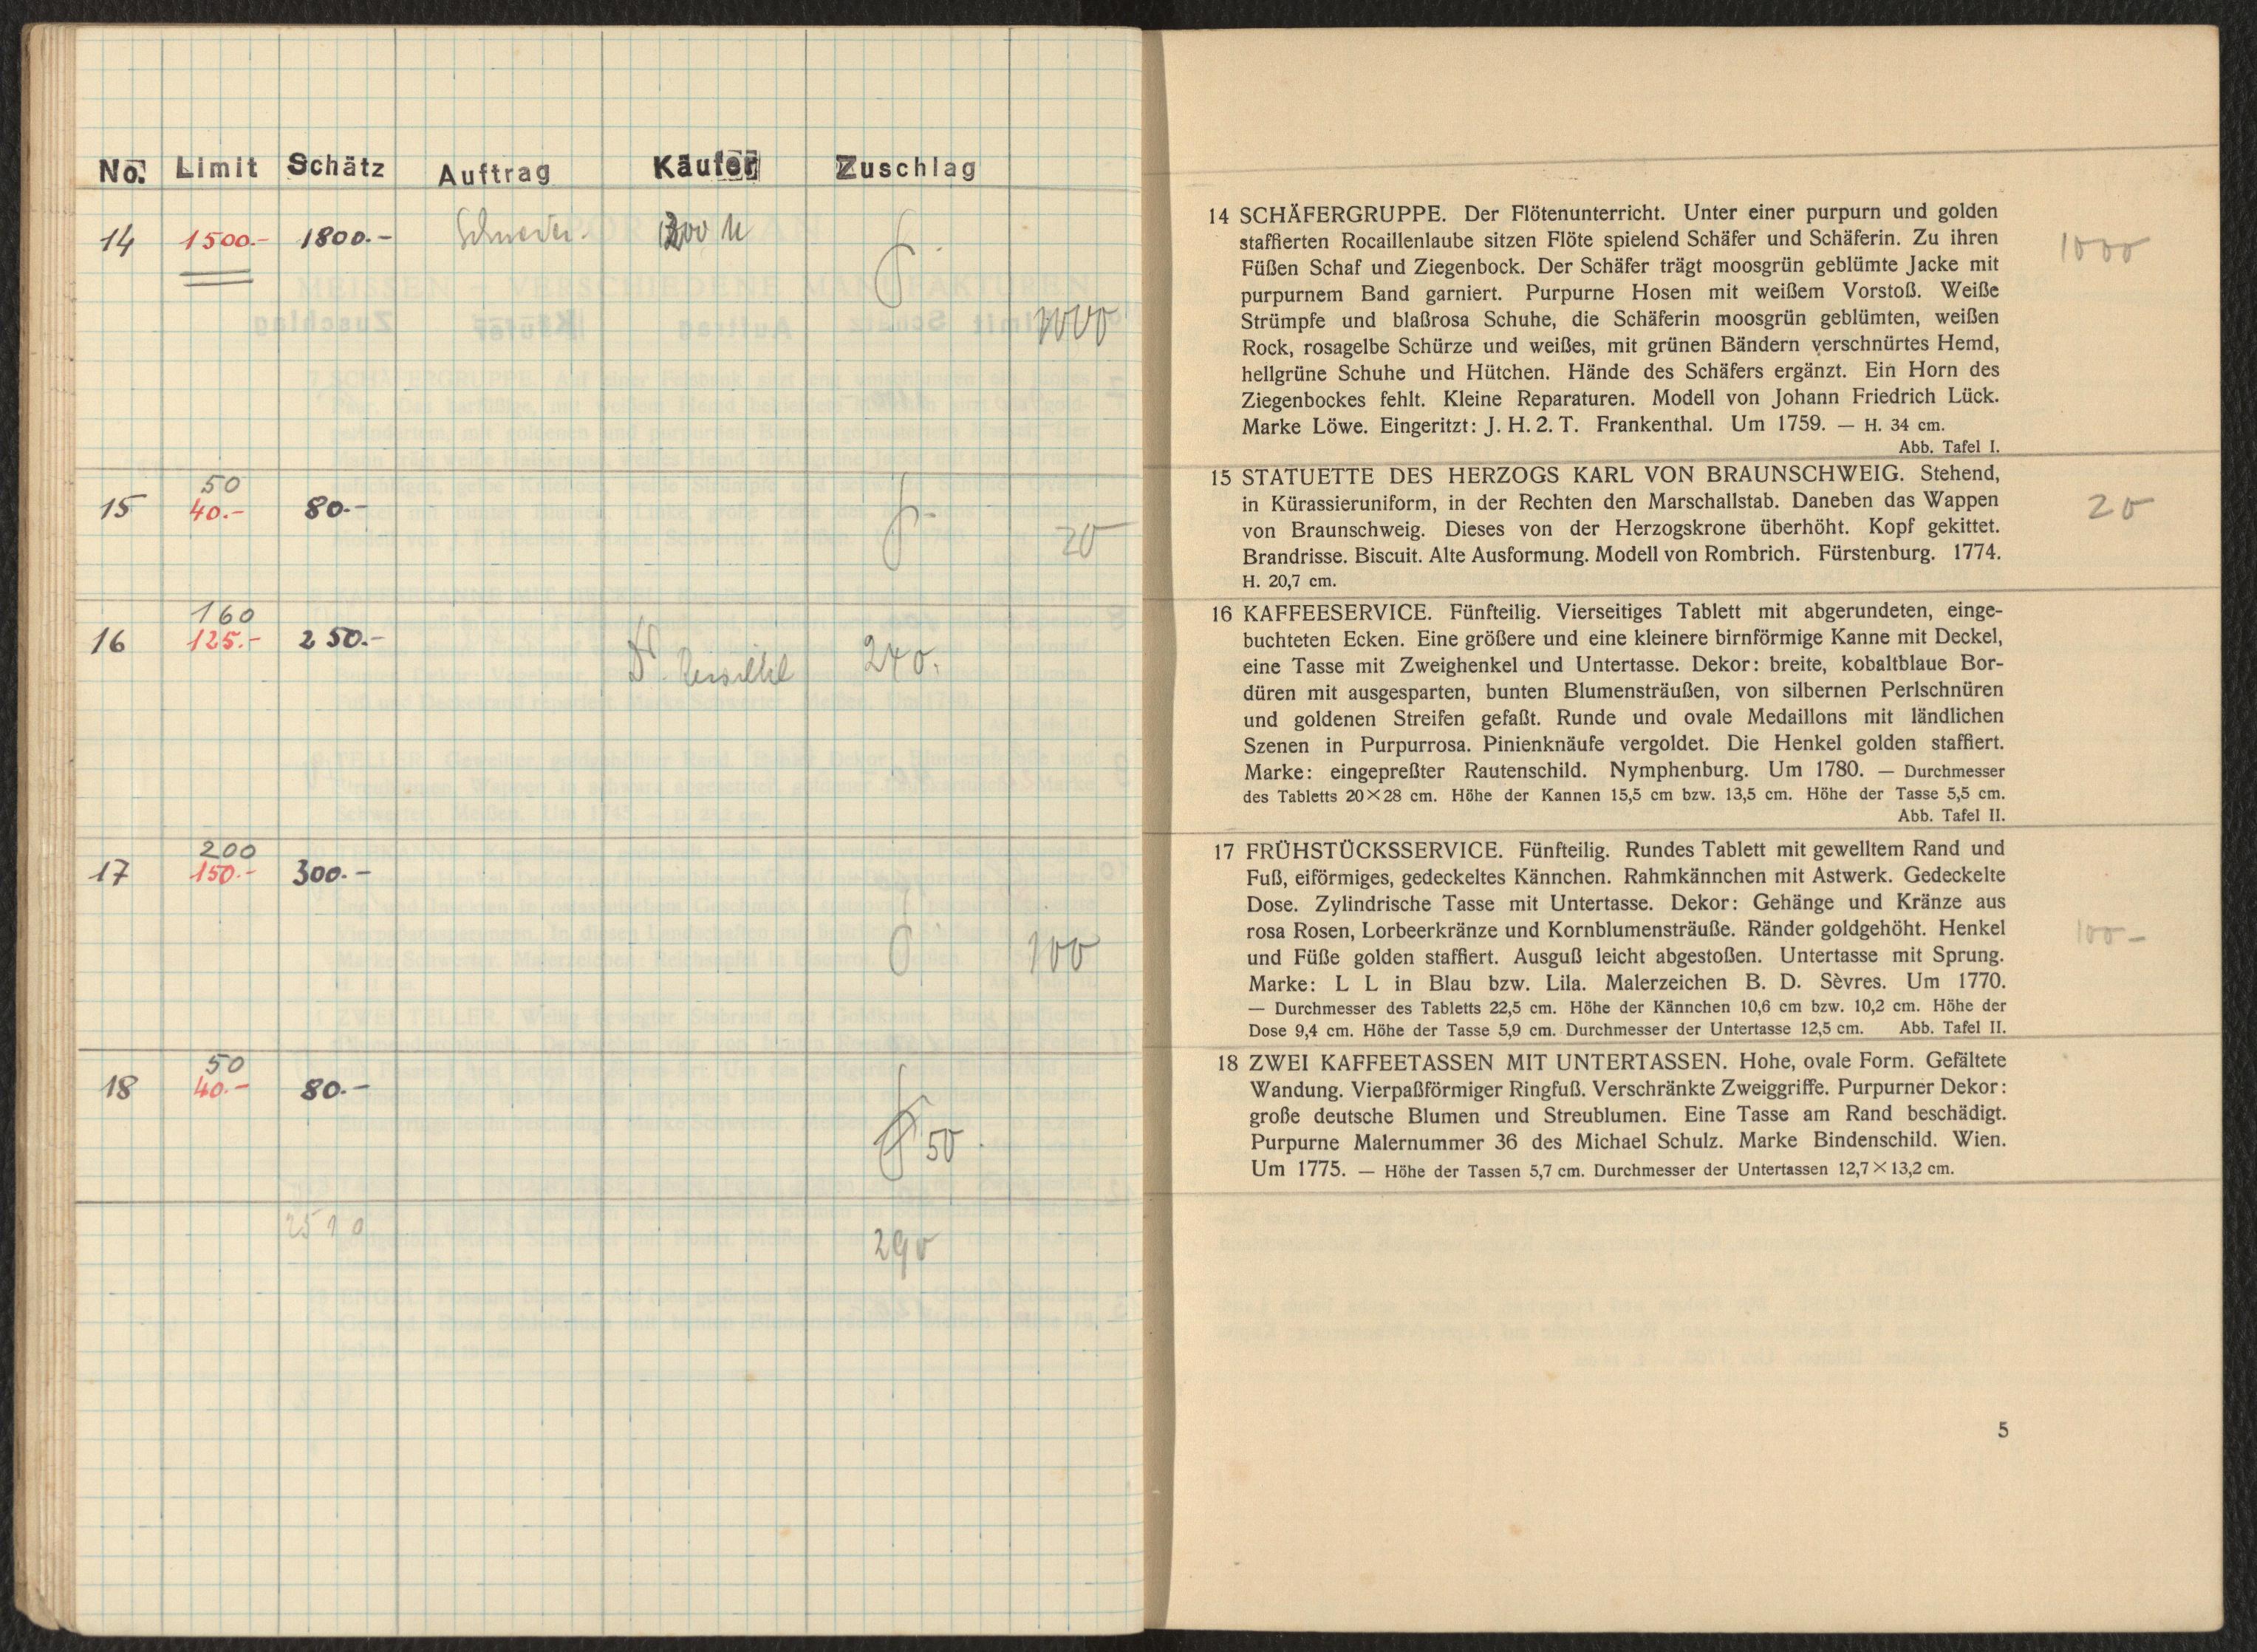 No. Limit Schätz Auftrag Käufer Zuschlag
14 1500.- 1800.-
1000
50
15 40.- 80.-
20
160
16 125.- 250.-
Dr. 240.
200
17 150.- 300.-
100
50
18 40.- 80.-
50
2510
290
14 SCHÄFERGRUPPE. Der Flötenunterricht. Unter einer purpurn und golden
staffierten Rocaillenlaube sitzen Flöte spielend Schäfer und Schäferin. Zu ihren
Füßen Schaf und Ziegenbock. Der Schäfer trägt moosgrün geblümte Jacke mit
purpurnem Band garniert. Purpurne Hosen mit weißem Vorstoß. Weiße
Strümpfe und blaßrosa Schuhe, die Schäferin moosgrün geblümten, weißen
Rock, rosagelbe Schürze und weißes, mit grünen Bändern verschnürtes Hemd,
hellgrüne Schuhe und Hütchen. Hände des Schäfers ergänzt. Ein Horn des
Ziegenbockes fehlt. Kleine Reparaturen. Modell von Johann Friedrich Lück.
Marke Löwe. Eingeritzt: J. H. 2. T. Frankenthal. Um 1759. — H. 34 cm.
Abb. Tafel I.
1000
15 STATUETTE DES HERZOGS KARL VON BRAUNSCHWEIG. Stehend,
in Kürassieruniform, in der Rechten den Marschallstab. Daneben das Wappen
von Braunschweig. Dieses von der Herzogskrone überhöht. Kopf gekittet.
Brandrisse. Biscuit. Alte Ausformung. Modell von Rombrich. Fürstenburg. 1774.
H. 20,7 cm.
20
16 KAFFEESERVICE. Fünfteilig. Vierseitiges Tablett mit abgerundeten, einge-
buchteten Ecken. Eine größere und eine kleinere birnförmige Kanne mit Deckel,
eine Tasse mit Zweighenkel und Untertasse. Dekor: breite, kobaltblaue Bor-
düren mit ausgesparten, bunten Blumensträußen, von silbernen Perlschnüren
und goldenen Streifen gefaßt. Runde und ovale Medaillons mit ländlichen
Szenen in Purpurrosa. Pinienknäufe vergoldet. Die Henkel golden staffiert.
Marke: eingepreßter Rautenschild. Nymphenburg. Um 1780. — Durchmesser
des Tabletts 20×28 cm. Höhe der Kannen 15,5 cm bzw. 13,5 cm. Höhe der Tasse 5,5 cm.
Abb. Tafel II.
17 FRÜHSTÜCKSSERVICE. Fünfteilig. Rundes Tablett mit gewelltem Rand und
Fuß, eiförmiges, gedeckeltes Kännchen. Rahmkännchen mit Astwerk. Gedeckelte
Dose. Zylindrische Tasse mit Untertasse. Dekor: Gehänge und Kränze aus
rosa Rosen, Lorbeerkränze und Kornblumensträuße. Ränder goldgehöht. Henkel
und Füße golden staffiert. Ausguß leicht abgestoßen. Untertasse mit Sprung.
Marke: L L in Blau bzw. Lila. Malerzeichen B. D. Sèvres. Um 1770.
— Durchmesser des Tabletts 22,5 cm. Höhe der Kännchen 10,6 cm bzw. 10,2 cm. Höhe der
Dose 9,4 cm. Höhe der Tasse 5,9 cm. Durchmesser der Untertasse 12,5 cm. Abb. Tafel II.
100-
18 ZWEI KAFFEETASSEN MIT UNTERTASSEN. Hohe, ovale Form. Gefältete
Wandung. Vierpaßförmiger Ringfuß. Verschränkte Zweiggriffe. Purpurner Dekor:
große deutsche Blumen und Streublumen. Eine Tasse am Rand beschädigt.
Purpurne Malernummer 36 des Michael Schulz. Marke Bindenschild. Wien.
Um 1775. — Höhe der Tassen 5,7 cm. Durchmesser der Untertassen 12,7×13,2 cm.
5